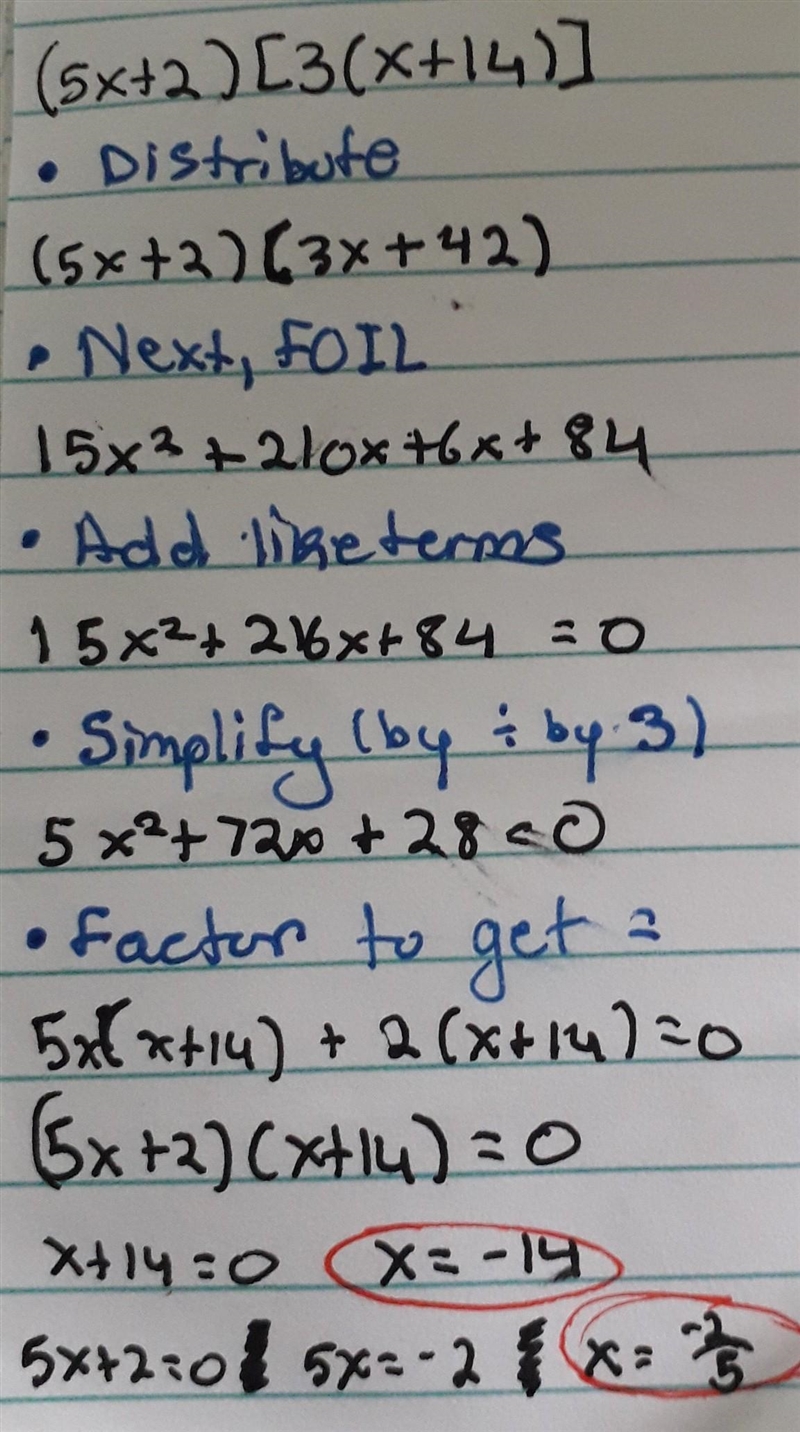 (5x+2)[3(x+14)]
• Distribute
(5x+2)(3x+42)
• Next, FOIL
15x²+210x+6x+84
• Add like terms
15x²+216x+84 =0
• Simplify (by ÷ by 3)
5x²+72x+28=0
• Factor to get =
5x(x+14) + 2(x+14)=0
(5x+2)(x+14)=0
x+14=0 x=-14
5x+2=0 5x=-2 x=-2/5